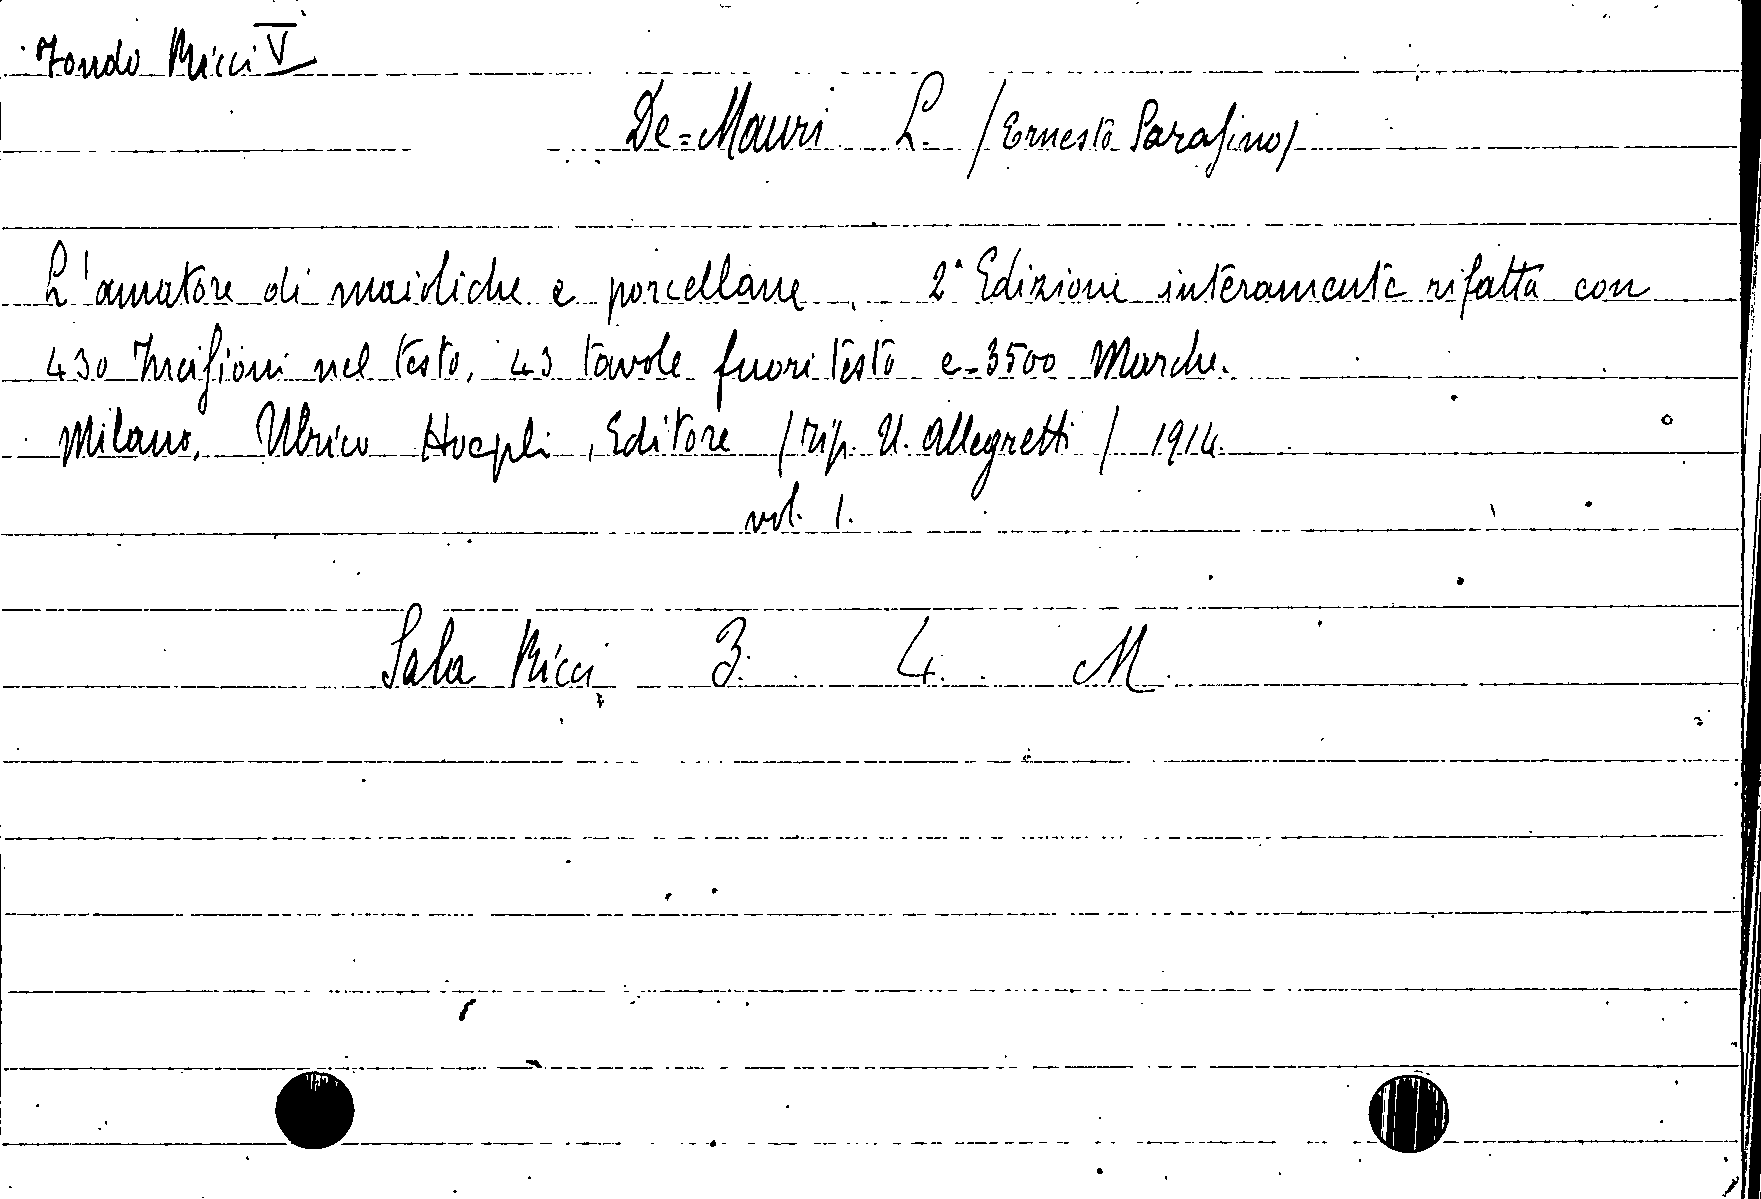 Fondo Ricci V
De=Mauri L. /Ernesto Sarasino/
L'amatore di maioliche e porcellane. 2ª Edizione interamente rifatta con
430 Incisioni nel testo, 43 tavole fuori testo e 3500 Marche.
Milano, Ulrico Hoepli, Editore /Tip. U. Allegretti/ 1914.
vol. 1.
Sala Ricci 3. 4. M.